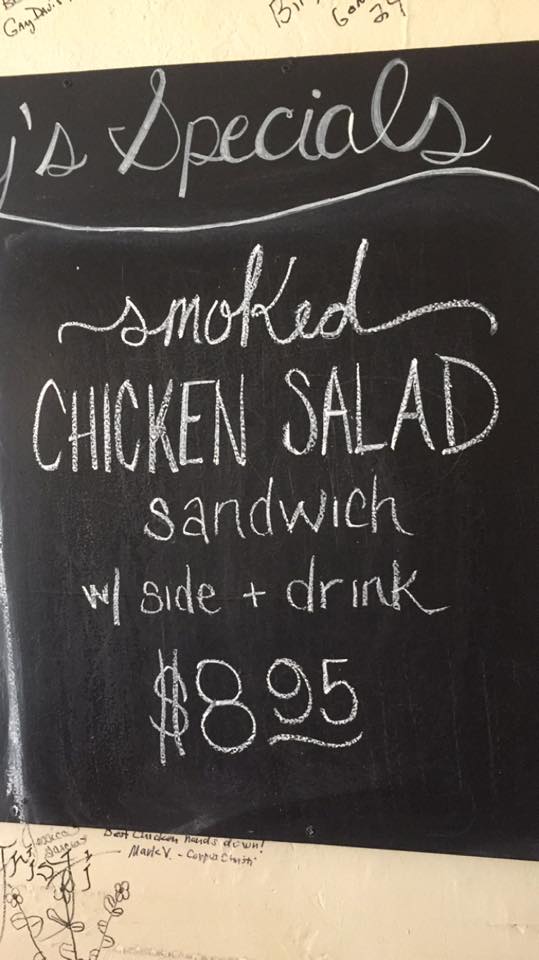 Gay David
y's Specials
smoked
CHICKEN SALAD
sandwich
w/ side + drink
$8.95
Jessica
Best Chicken hands down!
Mark V. - Corpus Christi